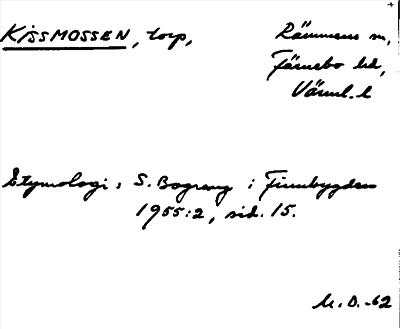 KISSMOSSEN, torp, Rämmens sn,
Färnebo hd,
Värml. l
Etymologi: S. Bograng i Finnbygden
1955:2, sid. 15.
M.O.-62